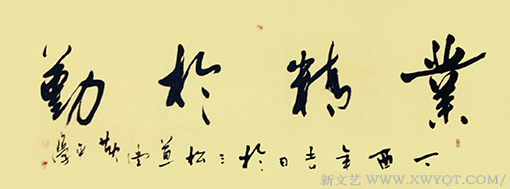 業精於勤
丁酉年吉日於三松草堂
新文艺 WWW.XWYQT.COM/